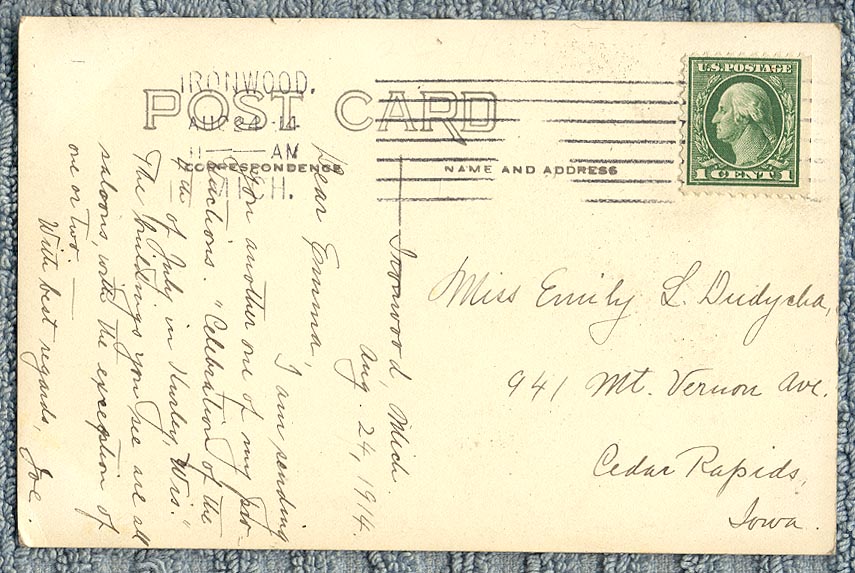 IRONWOOD.
AUG 24 14
11 AM
MICH.
POST CARD
CORRESPONDENCE
NAME AND ADDRESS
U.S. POSTAGE
1 CENT 1
Ironwood, Mich.
Aug. 24, 1914.
Dear Emma,
I am sending
you another one of my pro-
ductions. "Celebration of the
4th of July in Hurley, Wis."
The buildings you see are all
saloons, with the exception of
one or two. —
With best regards, Joe.
Miss Emily L. Dudycha,
941 Mt. Vernon Ave.
Cedar Rapids,
Iowa.